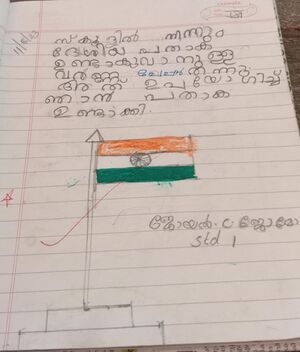 11/8/23
സ്കൂളിൽ നിന്നും
ദേശീയ പതാക
ഉണ്ടാകുവാനുള്ള
വർണ്ണ പേപ്പർ തന്നു
അത് ഉപയോഗിച്ച്
ഞാൻ പതാക
ഉണ്ടാക്കി.
ജോയൽ. c. ജോമോ
Std 1